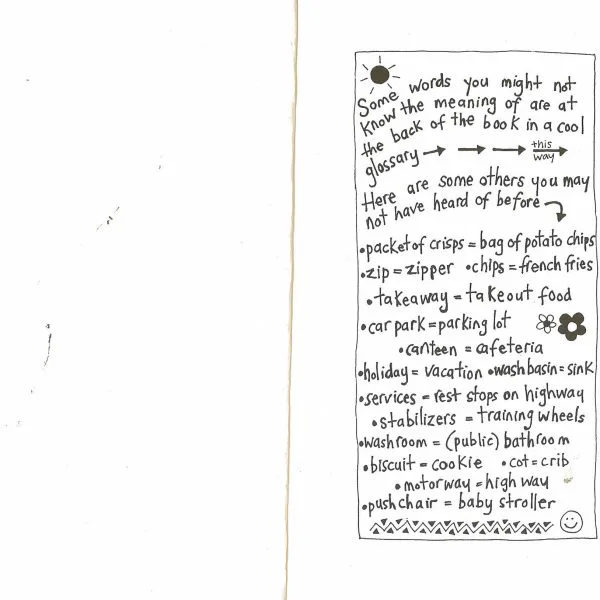 Some words you might not
know the meaning of are at
the back of the book in a cool
glossary → → → this way
Here are some others you may
not have heard of before
•packet of crisps = bag of potato chips
•zip = zipper •chips = french fries
•takeaway = takeout food
•car park = parking lot
•canteen = cafeteria
•holiday = vacation •wash basin = sink
•services = rest stops on highway
•stabilizers = training wheels
•washroom = (public) bathroom
•biscuit = cookie •cot = crib
•motorway = high way
•pushchair = baby stroller